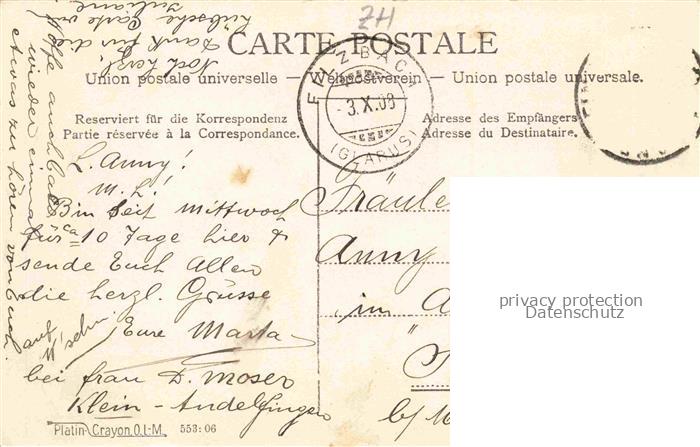 ZH
CARTE POSTALE
Union postale universelle – Weltpostverein – Union postale universale.
FILZBACH
-3.X.08
(GLARUS)
Reserviert für die Korrespondenz
Partie réservée à la Correspondance.
Adresse des Empfängers
Adresse du Destinataire.
L. Anny!
M. L!
Bin seit Mittwoch
für ca 10 Tage hier &
sende Euch Allen
die herzl. Grüsse
Eure Marta
auf W'sehn.
bei frau D. Moser
Klein-Andelfingen
Noch herzl.
Dank für die
hübsche Karte v.
Juliane
Hoffe auch bald
wieder einmal
etwas zu hören von Euch.
Fräule
Anny
im A
b/M
privacy protection
Datenschutz
Platin-Crayon.O.I.-M. 553:06